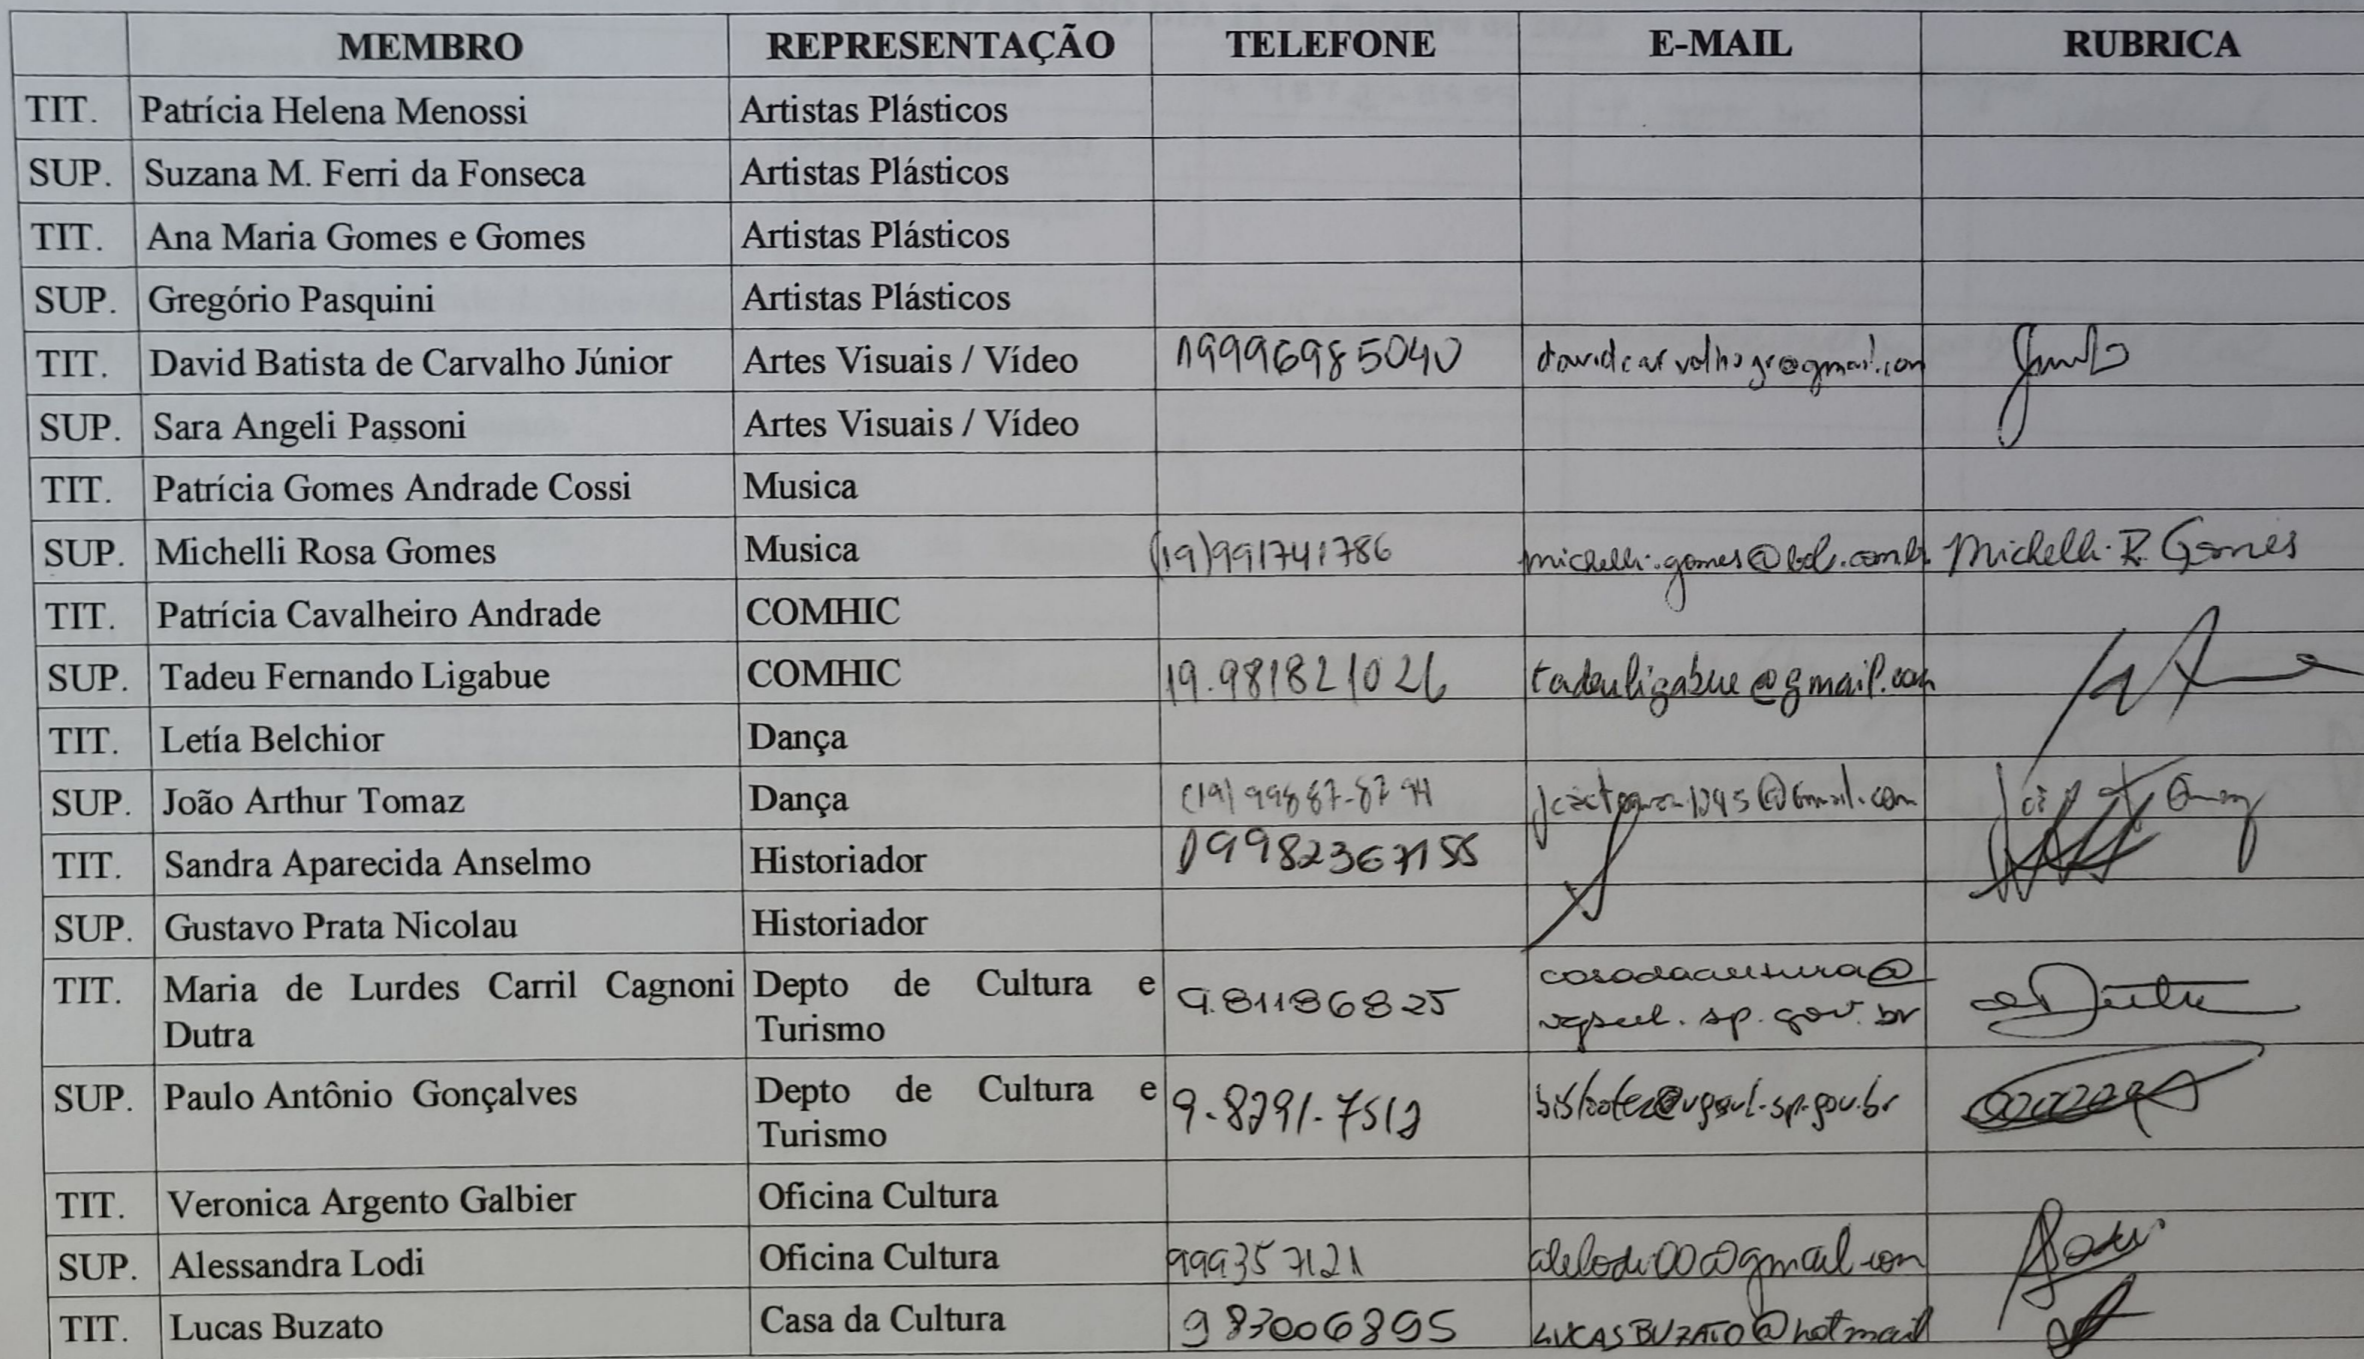 MEMBRO REPRESENTAÇÃO TELEFONE E-MAIL RUBRICA
TIT. Patrícia Helena Menossi Artistas Plásticos
SUP. Suzana M. Ferri da Fonseca Artistas Plásticos
TIT. Ana Maria Gomes e Gomes Artistas Plásticos
SUP. Gregório Pasquini Artistas Plásticos
TIT. David Batista de Carvalho Júnior Artes Visuais / Vídeo 19996985040
SUP. Sara Angeli Passoni Artes Visuais / Vídeo
TIT. Patrícia Gomes Andrade Cossi Musica
SUP. Michelli Rosa Gomes Musica (19)991741786 michelli.gomes@bol.com.br Michelli. R. Gomes
TIT. Patrícia Cavalheiro Andrade COMHIC
SUP. Tadeu Fernando Ligabue COMHIC 19.981821026 tadeuligabue@gmail.com
TIT. Letía Belchior Dança
SUP. João Arthur Tomaz Dança (19) 99887-8794
TIT. Sandra Aparecida Anselmo Historiador
SUP. Gustavo Prata Nicolau Historiador
TIT. Maria de Lurdes Carril Cagnoni Depto de Cultura e 9.81186825 casadacultura@
Dutra Turismo vgsul.sp.gov.br Dutra
SUP. Paulo Antônio Gonçalves Depto de Cultura e 9.8291-7512
Turismo
TIT. Veronica Argento Galbier Oficina Cultura
SUP. Alessandra Lodi Oficina Cultura 999357121 alelodi00@gmail.com
TIT. Lucas Buzato Casa da Cultura 983006895 LUCASBUZATO@hotmail